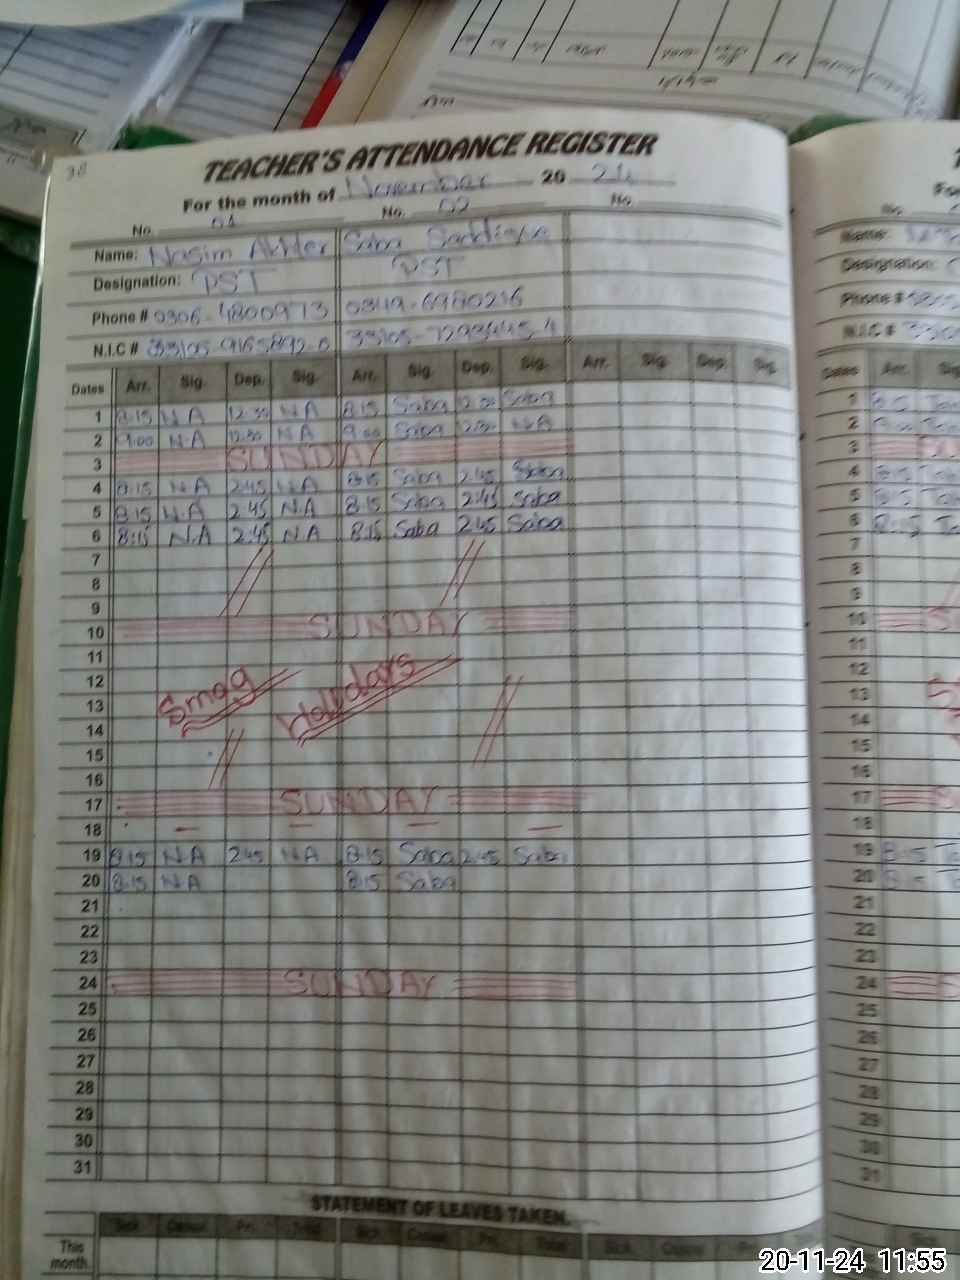 38
TEACHER'S ATTENDANCE REGISTER
For the month of November 20 24
No. 01 No. 02 No.
Name: Nasim Akhter Saba Saddique
Designation: PST PST
Phone # 0306-4800973 0349-6980216
N.I.C #
Dates Arr. Sig. Dep. Sig. Arr. Sig. Dep. Sig. Arr. Sig. Dep. Sig.
1 8:15 N A 12:30 N A 8:15 Saba 12:30 Saba
2 9:00 N.A 12:30 N A 9:00 Saba 12:30 N A
3 SUNDAY
4 8:15 N A 2:45 N A 8:15 Saba 2:45 Saba
5 8:15 N A 2:45 N A 8:15 Saba 2:45 Saba
6 8:15 N.A 2:45 N.A 8:15 Saba 2:45 Saba
7
8
9
10 SUNDAY
11
12
13 Smog Holidays
14
15
16
17 SUNDAY
18 — — — —
19 8:15 N A 2:45 N A 8:15 Saba 2:45 Saba
20 8:15 N A 8:15 Saba
21
22
23
24 SUNDAY
25
26
27
28
29
30
31
STATEMENT OF LEAVES TAKEN.
Sick Casual Pri. Total Sick Casual Pri. Total Sick Casual Pri.
This
month
Name:
Designation:
Phone #
N.I.C #
Dates Arr.
1 8:15
2 9:00
3
4 8:15
5 8:15
6 8:15
7
8
9
10
11
12
13
14
15
16
17
18
19 8:15
20 8:15
21
22
23
24
25
26
27
28
29
30
31
Sick
20-11-24 11:55